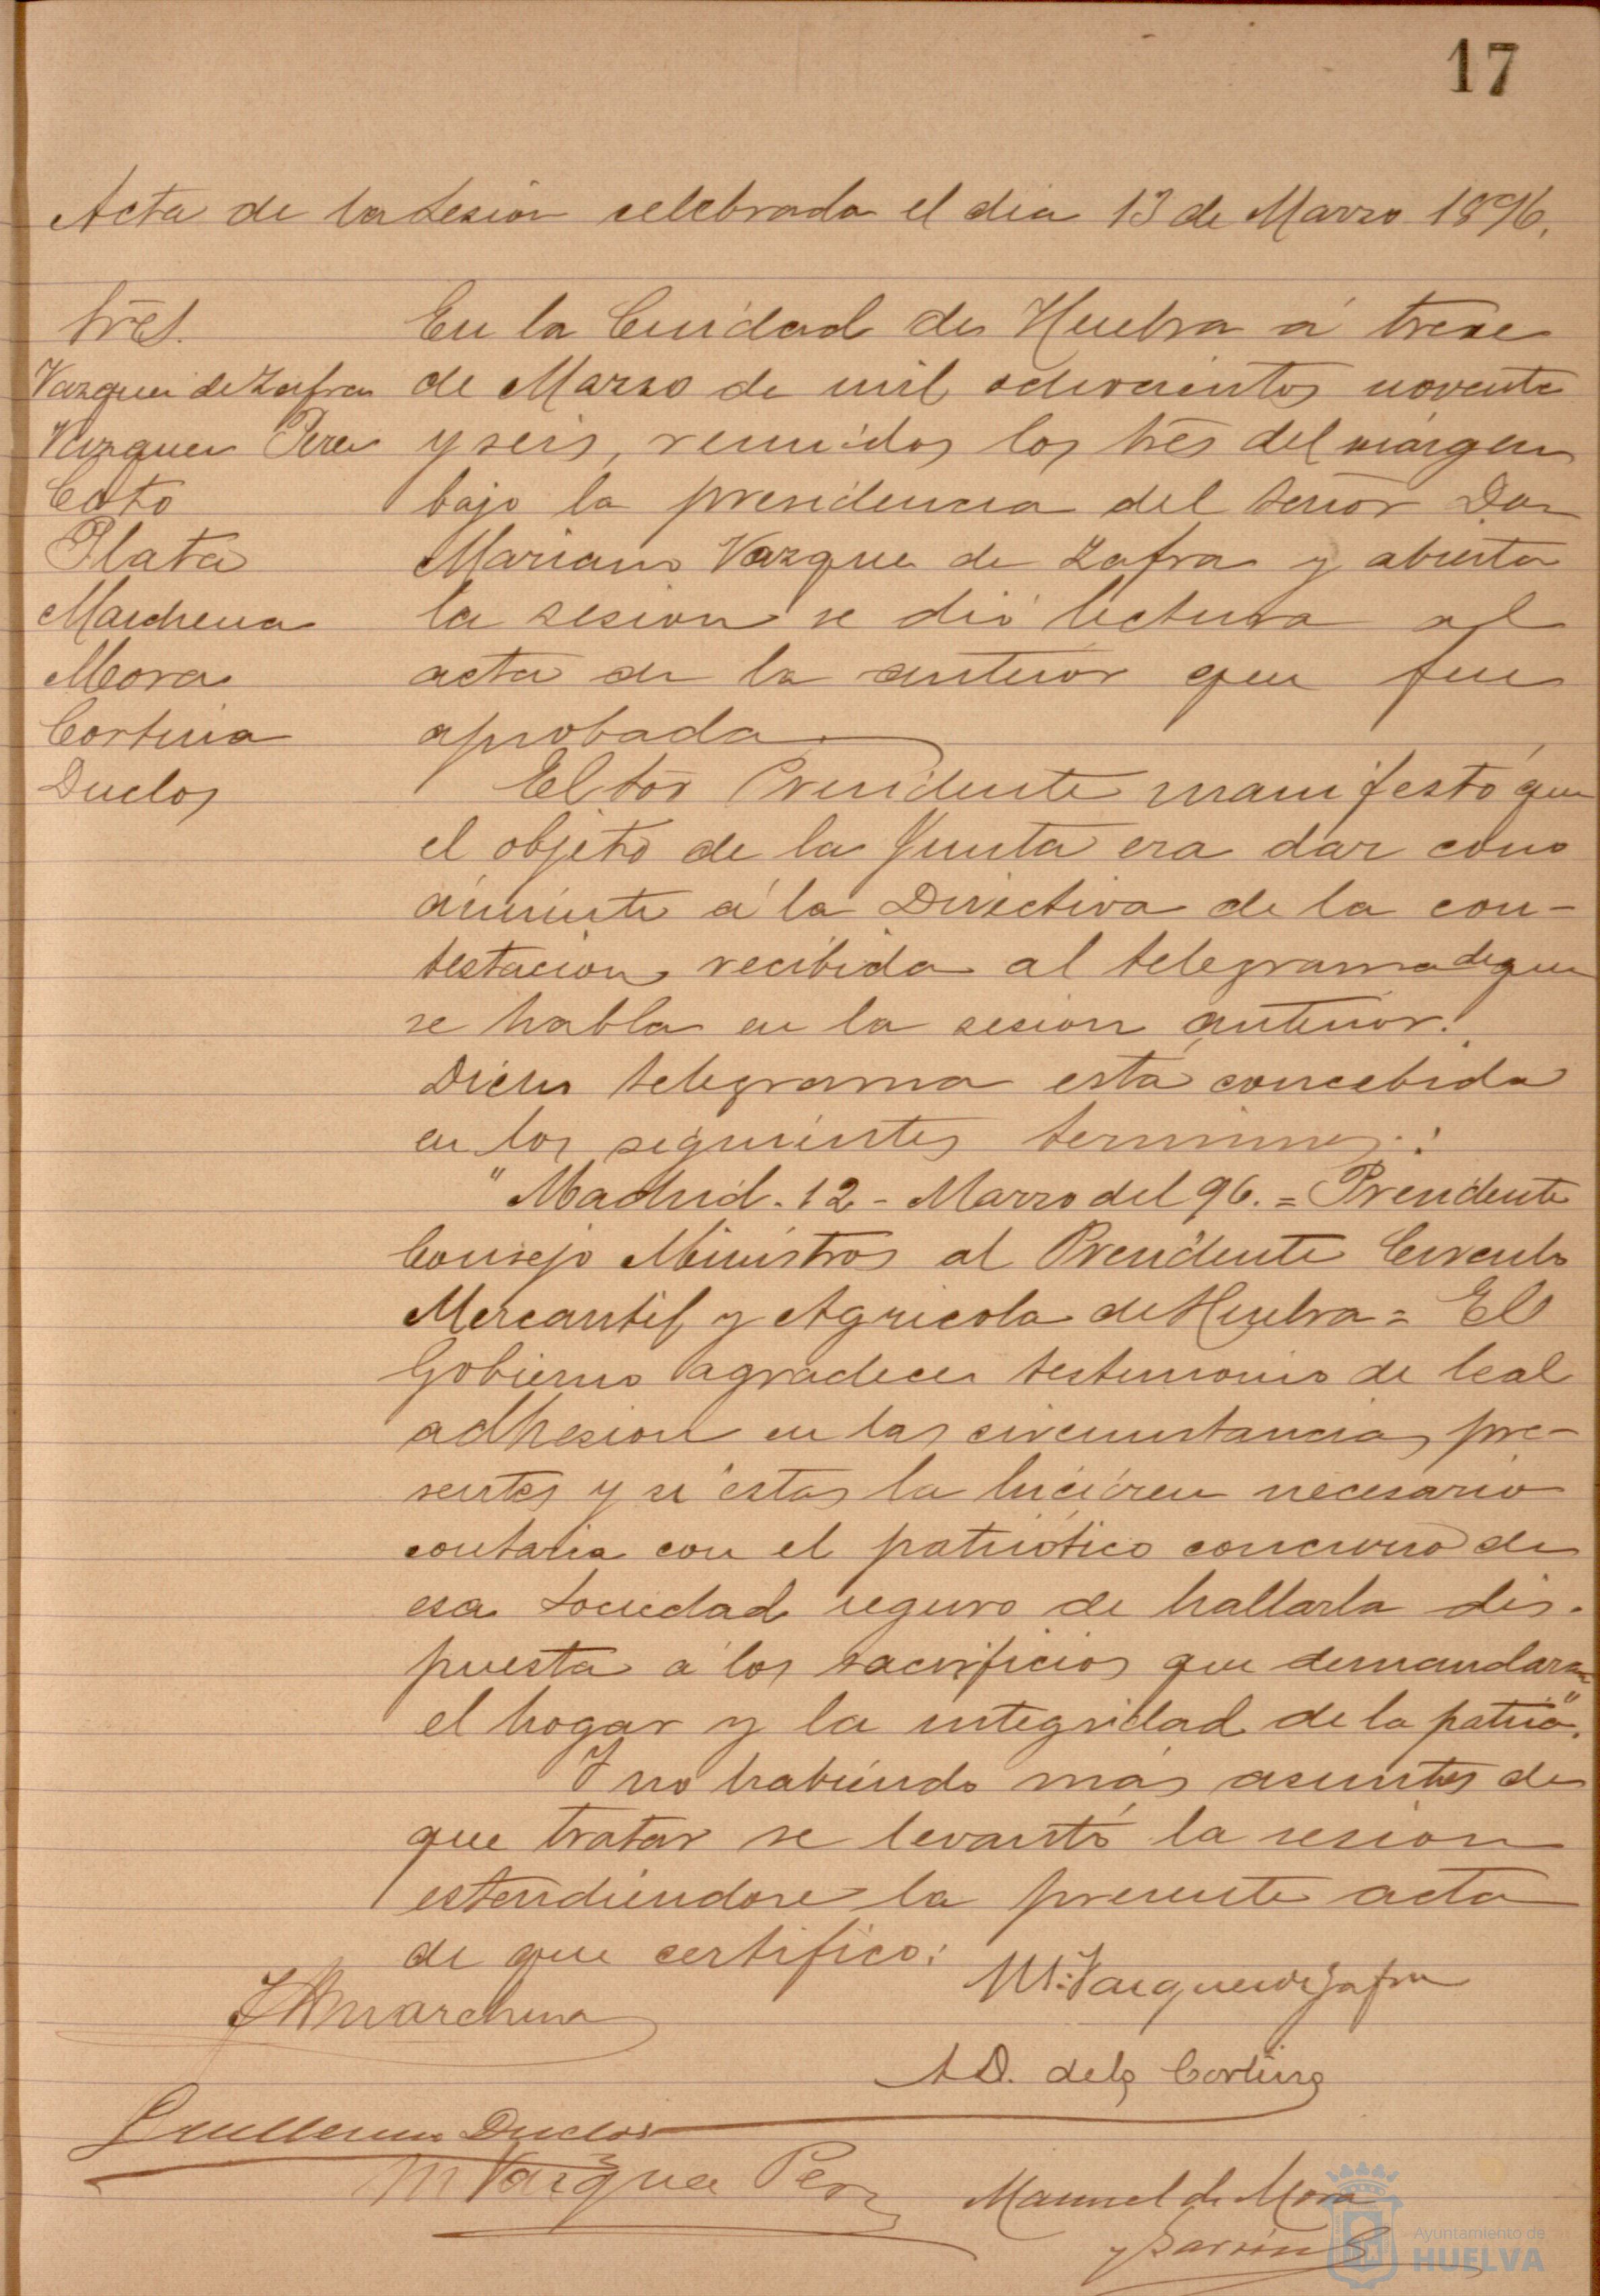 17
Acta de la Sesion celebrada el dia 13 de Marzo 1896.
Sres.
Vazquez de Zafra
Vazquez Perez
Coto
Plata
Marchena
Mora
Cortina
Duclos
En la Ciudad de Huelva á trece
de Marzo de mil ochocientos noventa
y seis, reunidos los Sres del márgen
bajo la presidencia del Señor Don
Mariano Vazquez de Zafra y abierta
la sesion se dió lectura al
acta de la anterior que fue
aprobada
El Sor Presidente manifestó que
el objeto de la Junta era dar cono
cimiento á la Directiva de la con-
testacion recibida al telegrama de que
se habla en la sesion anterior.
Dicho telegrama está concebido
en los siguientes terminos:
"Madrid. 12 - Marzo del 96. = Presidente
Consejo Ministros al Presidente Circulo
Mercantil y Agricola de Huelva = El
Gobierno agradece testimonio de leal
adhesion en las circunstancias pre-
sentes y si estas la hicieren necesario
contaria con el patriótico concurso de
esa Sociedad seguro de hallarla dis-
puesta á los sacrificios que demandaran
el hogar y la integridad de la patria".
Y no habiendo más asuntos de
que tratar se levantó la sesion
estendiendose la presente acta
de que certifico:
M. Vazquez de Zafra
Marchena
A D. de la Cortina
Guillermo Duclos
M Vazquez Perez
Manuel de Mora
y Garzón
Ayuntamiento de
HUELVA